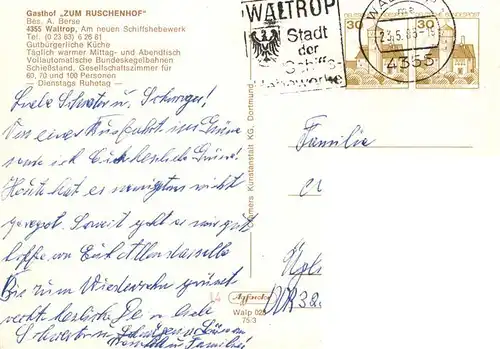 Gasthof „ZUM RUSCHENHOF"
Bes. A. Berse
4355 Waltrop, Am neuen Schiffshebewerk
Tel. (0 23 63) 6 26 81
Gutbürgerliche Küche
Täglich warmer Mittag- und Abendtisch
Vollautomatische Bundeskegelbahnen
Schießstand, Gesellschaftszimmer für
60, 70 und 100 Personen
— Dienstags Ruhetag —
WALTROP
Stadt
der
Schiffs-
Hebewerke
WALTROP
23.5.83
4355
30
30
Liebe Schwester u. Schwager!
Von einer Ausfahrt ins Grüne
sende ich Euch herzliche Grüße!
Heute hat es wenigstens nicht
geregnet. Soweit geht es mir gut
hoffe von Euch Allen dasselbe
Bis zum Wiedersehn grüßt
recht herzlich
Schwester u.
Familie
Cramers Kunstanstalt KG, Dortmund
Walp 028
75:3